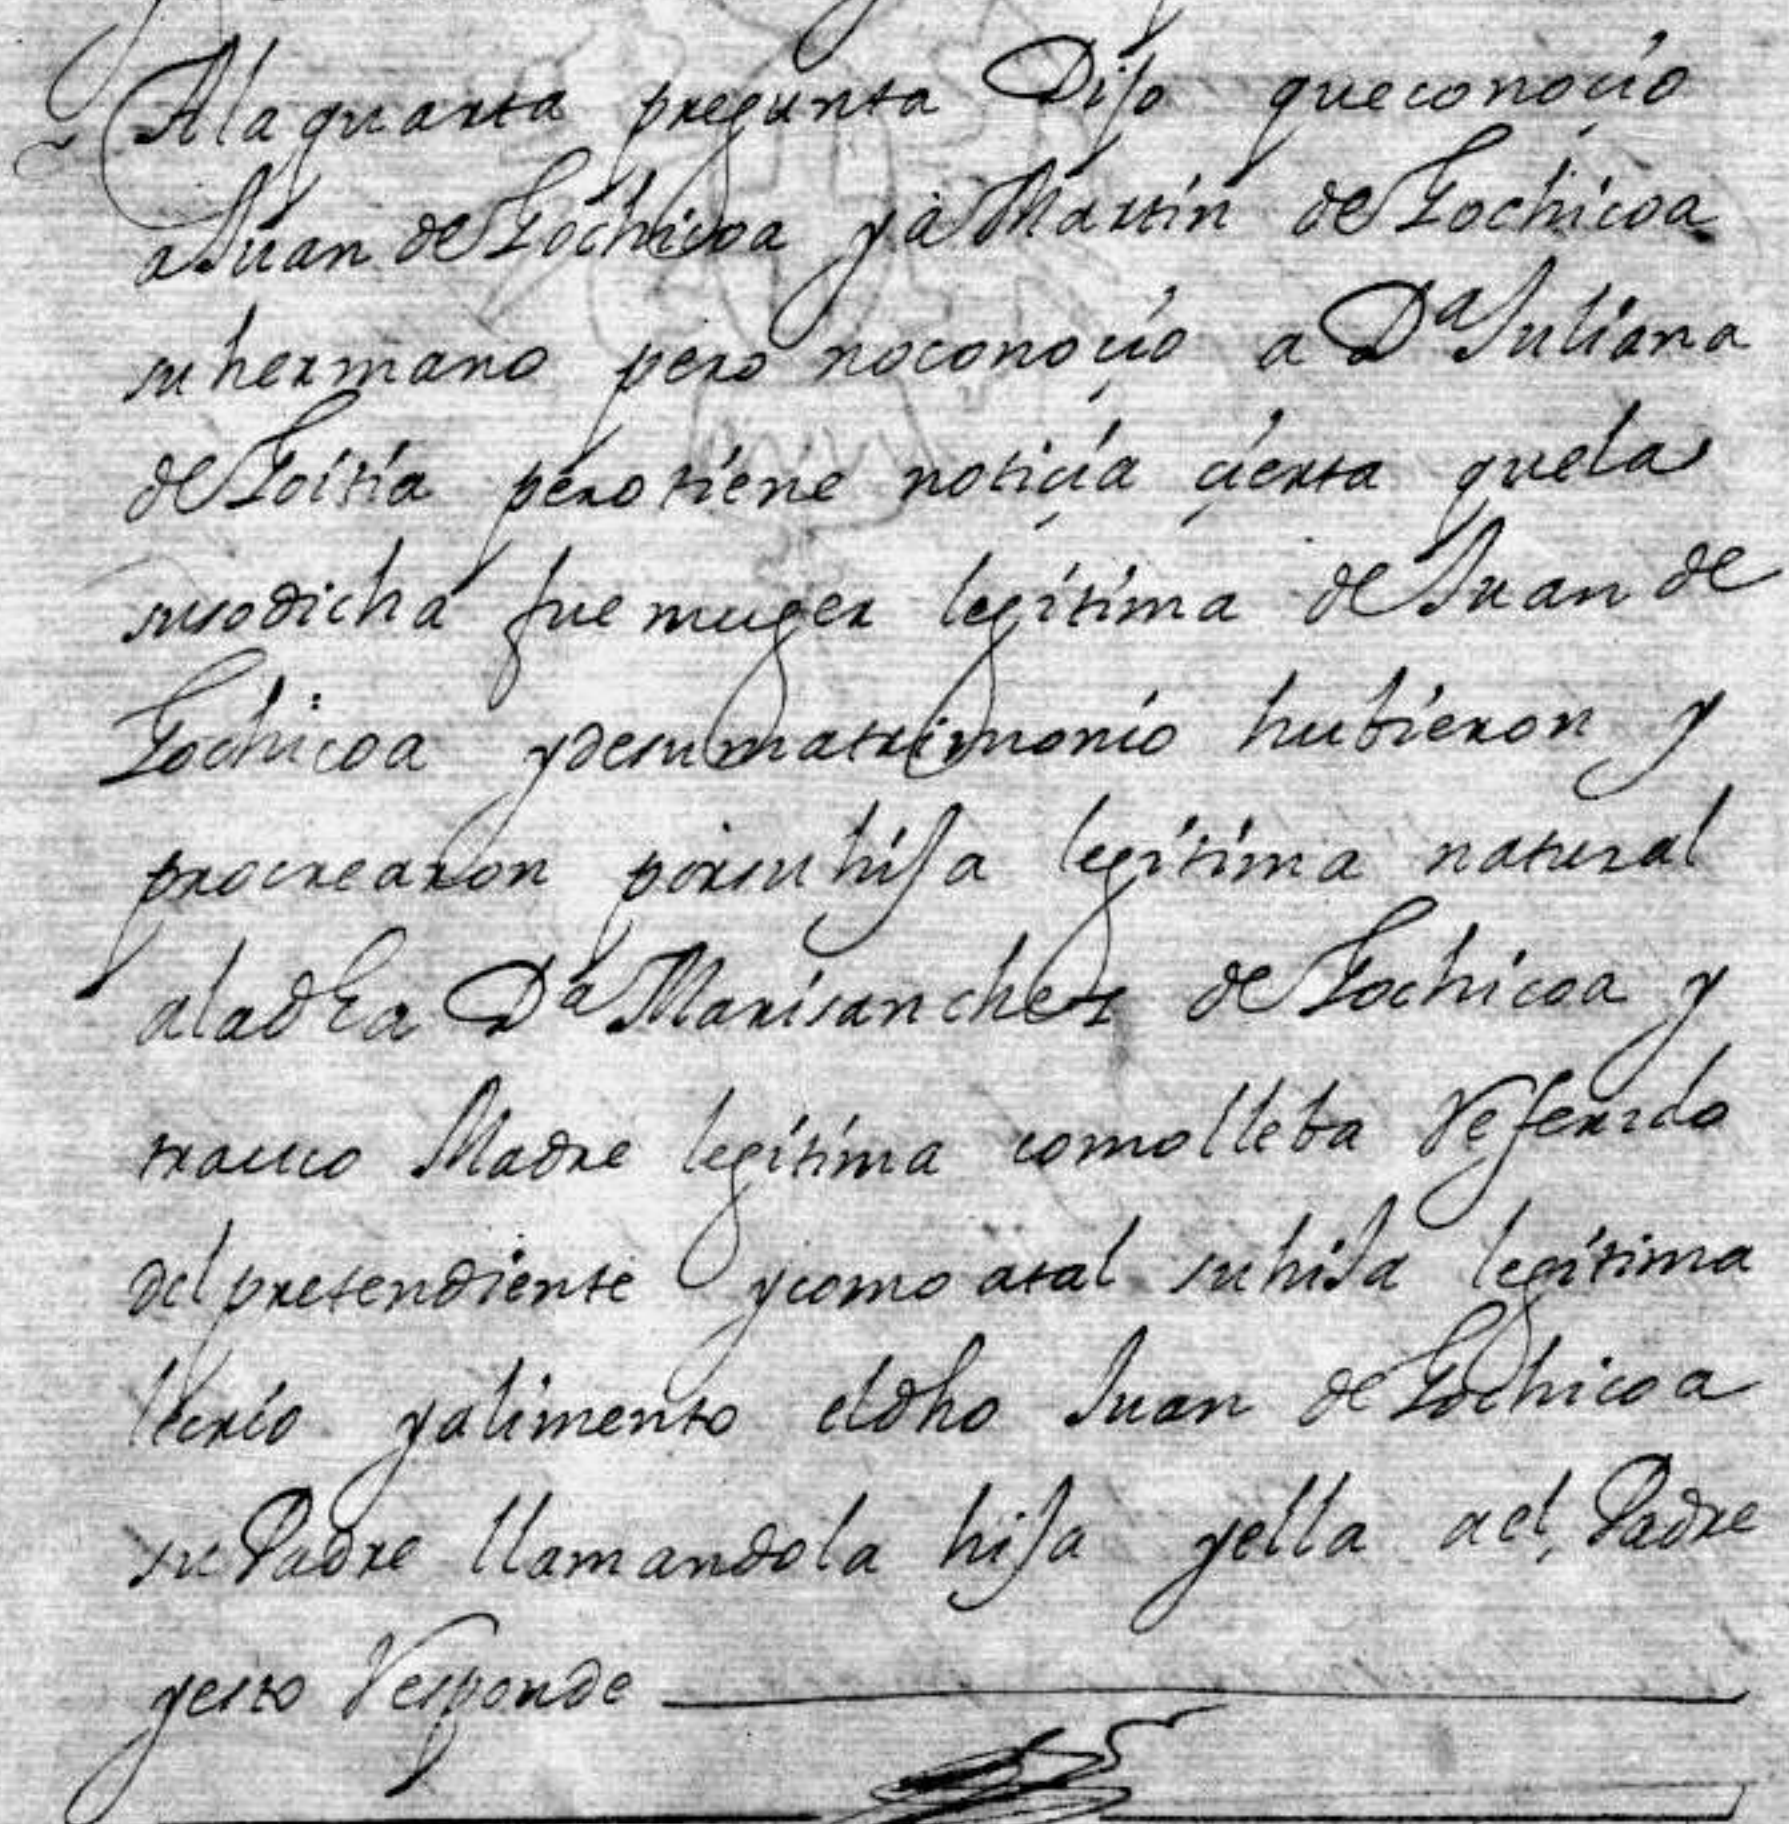 A la quarta pregunta Dijo que conoçio
a Juan de Gochicoa y a Martin de Gochicoa
su hermano pero no conoçio a Dª Juliana
de Goitia pero tiene notiçia çierta que la
susodicha fue muger legitima de Juan de
Gochicoa y de su matrimonio hubieron y
procrearon por su hija legitima natural
a la dha Dª Marisanchez de Gochicoa y
Madre legitima como lleba Referido
del pretendiente y como a tal su hija legitima
le crio y alimento el dho Juan de Gochicoa
su Padre llamandola hija y ella a el, Padre
y esto Responde